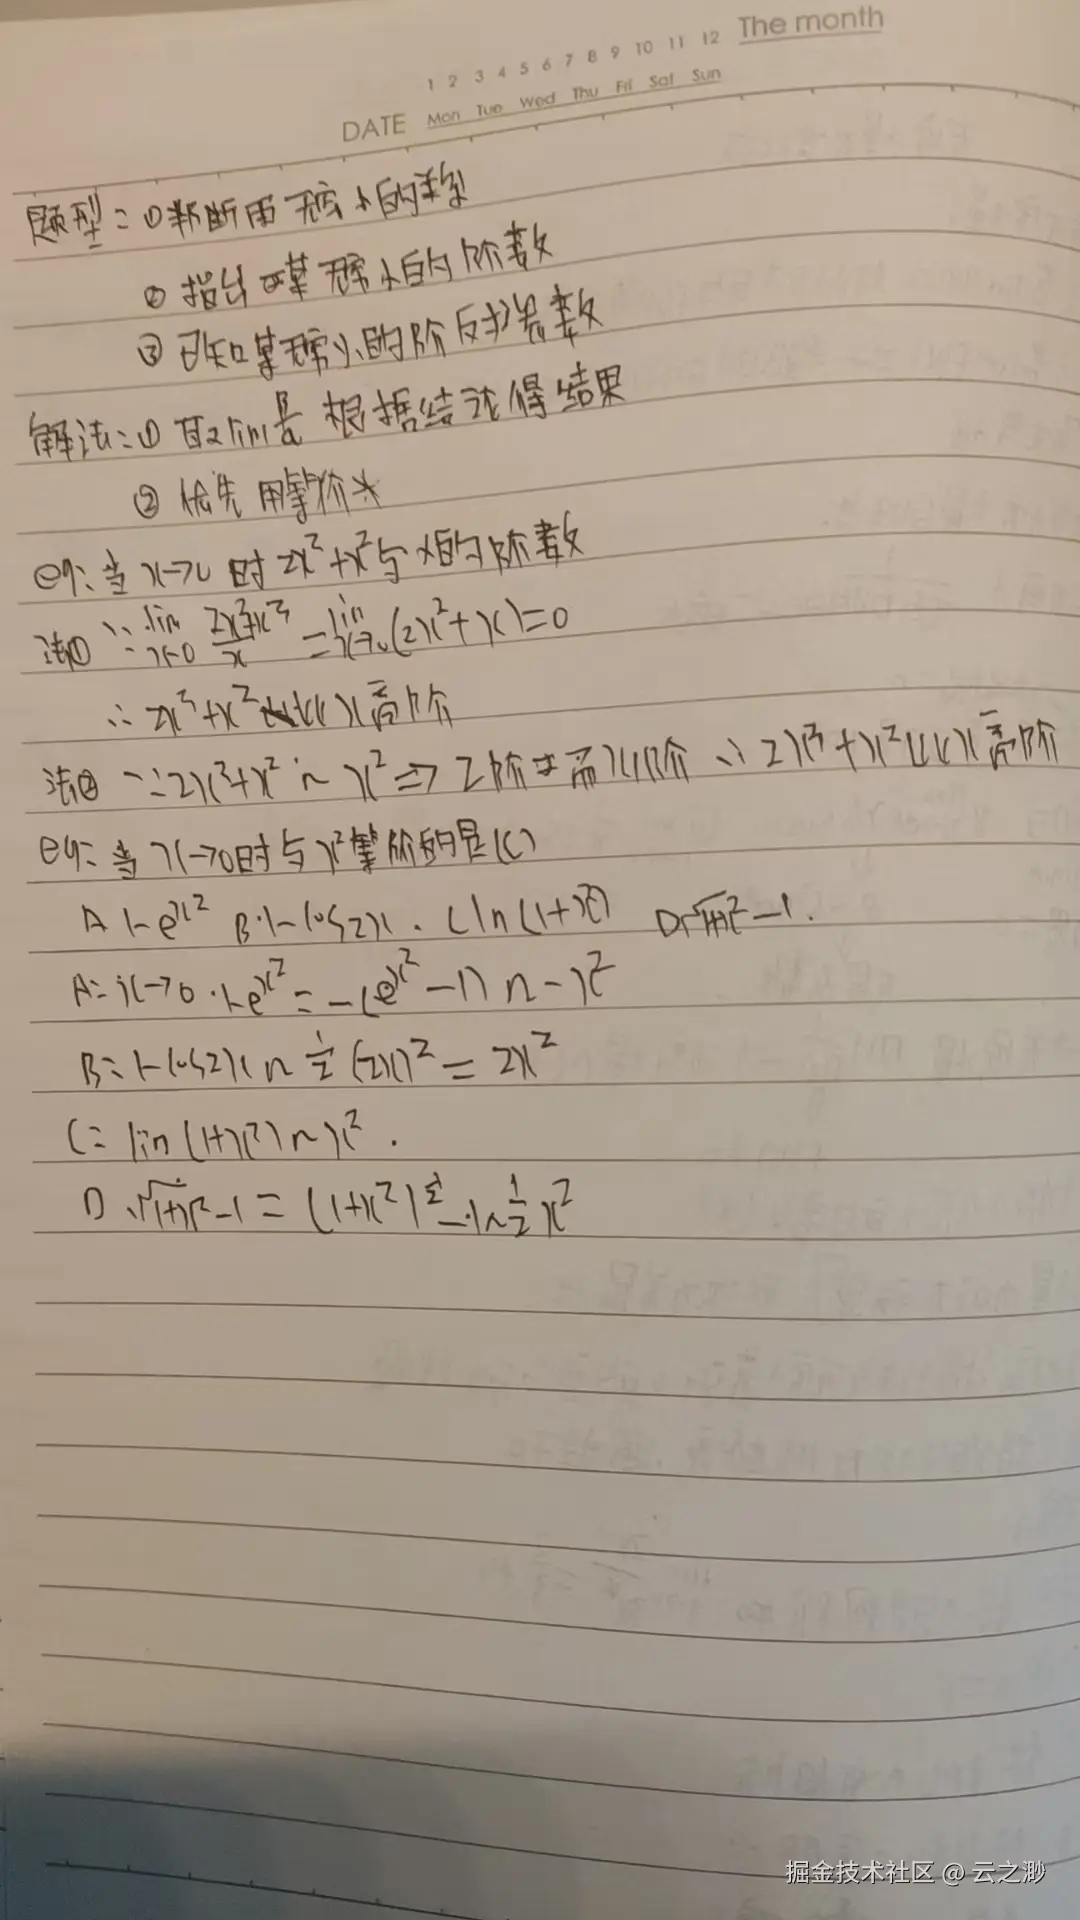 The month
1 2 3 4 5 6 7 8 9 10 11 12
DATE Mon Tue Wed Thu Fri Sat Sun
题型：①判断两无穷小的类型
② 指出某无穷小的阶数
③ 已知某无穷小的阶反求参数
解法：① 取lim β/α 根据结论得结果
② 优先用等价*
eg：当x→0时2x³+x²与x的阶数
法① ∵ lim x→0 (2x³+x²)/x = lim x→0 (2x²+x)=0
∴ 2x³+x²比x高阶
法② ∵ 2x³+x² ~ x² ⇒ 2阶 而x1阶 ∴ 2x³+x²比x高阶
eg：当x→0时与x²等价的是(C)
A 1-e^x² B.1-cos2x. C ln(1+x²) D √1+x² -1.
A：x→0. 1-e^x² = -(e^x²-1) ~ -x²
B：1-cos2x ~ 1/2 (2x)² = 2x²
C：lin(1+x²) ~ x².
D. √1+x² -1 = (1+x²)^1/2 -1 ~ 1/2 x²
掘金技术社区 @ 云之渺